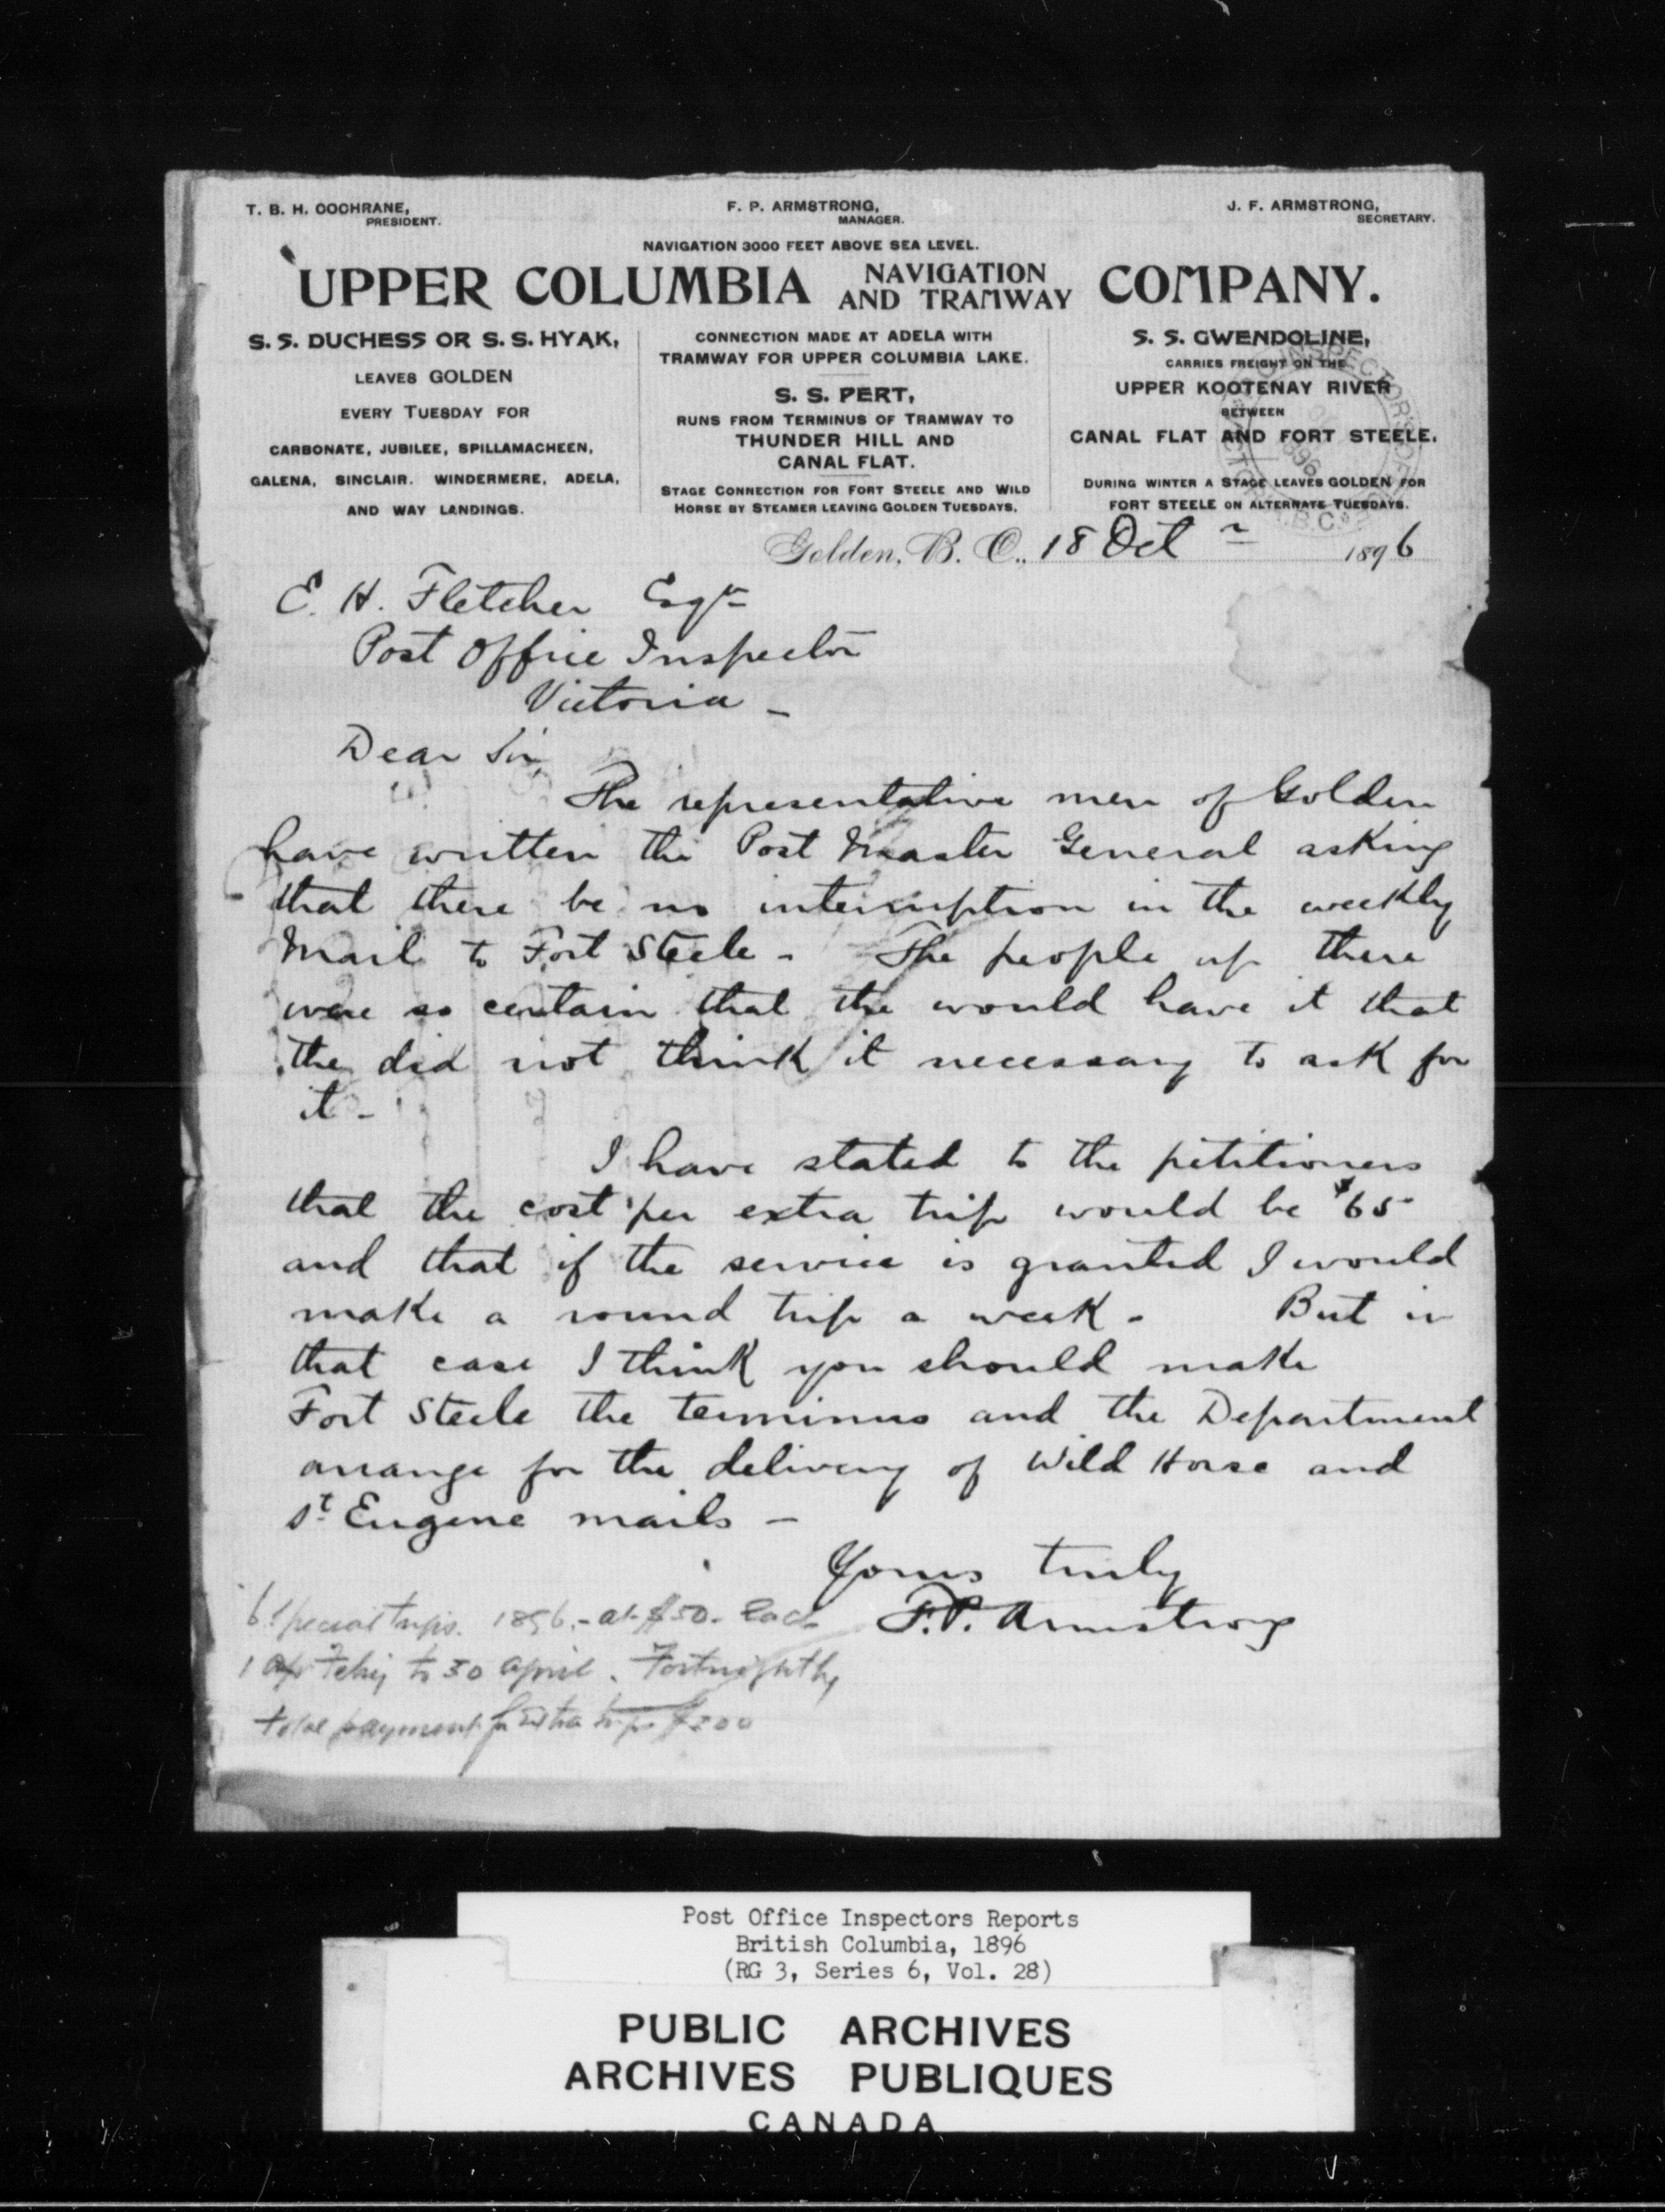 T. B. H. COCHRANE,
PRESIDENT.
F. P. ARMSTRONG,
MANAGER.
J. F. ARMSTRONG,
SECRETARY.
NAVIGATION 3000 FEET ABOVE SEA LEVEL.
UPPER COLUMBIA NAVIGATION AND TRAMWAY COMPANY.
S. S. DUCHESS OR S. S. HYAK,
LEAVES GOLDEN
EVERY TUESDAY FOR
CARBONATE, JUBILEE, SPILLAMACHEEN,
GALENA, SINCLAIR. WINDERMERE, ADELA,
AND WAY LANDINGS.
CONNECTION MADE AT ADELA WITH
TRAMWAY FOR UPPER COLUMBIA LAKE.
S. S. PERT,
RUNS FROM TERMINUS OF TRAMWAY TO
THUNDER HILL AND
CANAL FLAT.
STAGE CONNECTION FOR FORT STEELE AND WILD
HORSE BY STEAMER LEAVING GOLDEN TUESDAYS.
S. S. GWENDOLINE,
CARRIES FREIGHT ON THE
UPPER KOOTENAY RIVER
BETWEEN
CANAL FLAT AND FORT STEELE.
DURING WINTER A STAGE LEAVES GOLDEN FOR
FORT STEELE ON ALTERNATE TUESDAYS.
Golden, B. C., 18 Oct 1896
E. H. Fletcher Esqr
Post Office Inspector
Victoria -
Dear Sir,
The representative men of Golden
have written the Post Master General asking
that there be no interruption in the weekly
Mail to Fort Steele - The people up there
were so certain that the would have it that
the did not think it necessary to ask for
it -
I have stated to the petitioners
that the cost per extra trip would be $65
and that if the service is granted I would
make a round trip a week - But in
that case I think you should make
Fort Steele the terminus and the Department
arrange for the delivery of Wild Horse and
St Eugene mails -
Yours truly
F.P. Armstrong
6 special trips. 1896 - at $50. Each
1 to 30 April. Fortnightly
total payment for extra trips $300
Post Office Inspectors Reports
British Columbia, 1896
(RG 3, Series 6, Vol. 28)
PUBLIC ARCHIVES
ARCHIVES PUBLIQUES
CANADA